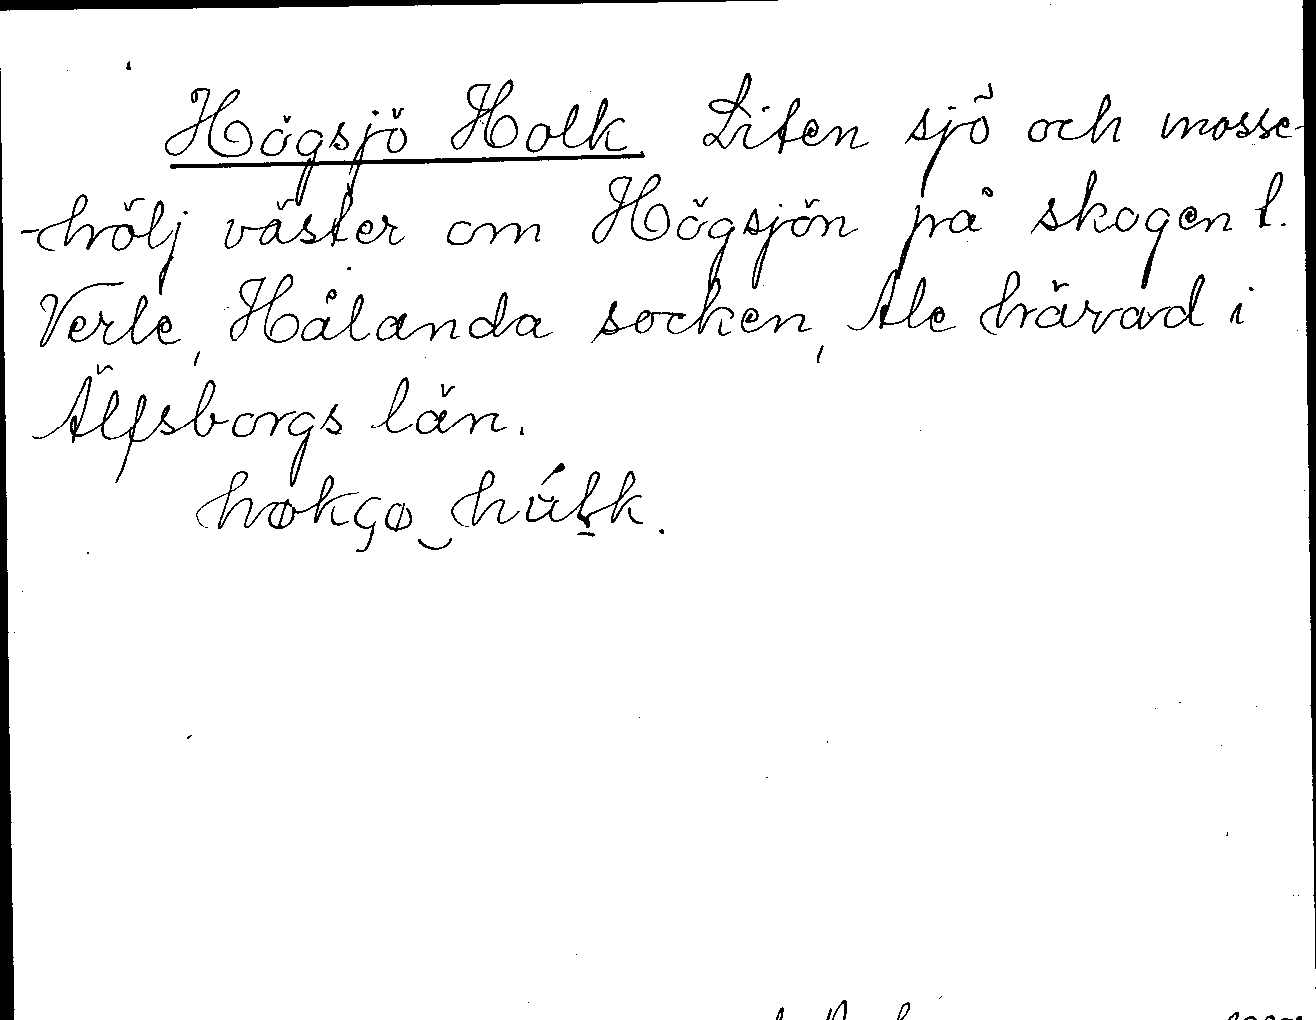 Högsjö Holk. Liten sjö och mosse-
-hölj väster om Högsjön på skogen t.
Verle, Hålanda socken, Ale härad i
Älfsborgs län.